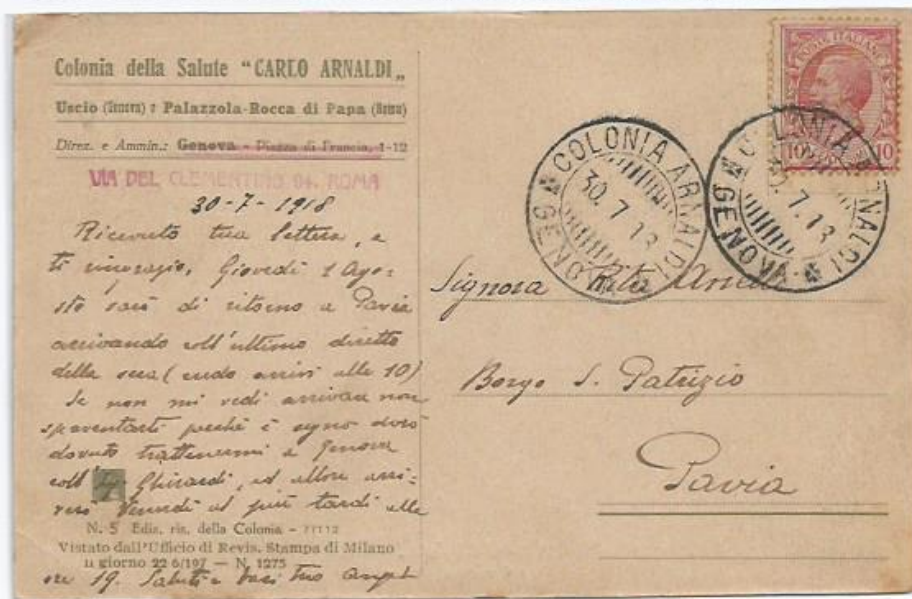 Colonia della Salute "CARLO ARNALDI„
Uscio (Genova) e Palazzola-Rocca di Papa (Roma)
Direz. e Ammin.: Genova - Piazza di Francia, 1-12
VIA DEL CLEMENTINO 94. ROMA
30-7-1918
Ricevuto tua lettera, e
ti ringrazio, Giovedì 1 Ago=
sto sarò di ritorno a Pavia
arrivando coll'ultimo diretto
della sera (credo arrivi alle 10)
Se non mi vedi arrivare non
spaventarti perchè è segno che
dovuto trattenermi a Genova
coll' Ghirardi, ed allora arri=
verò Venerdì al più tardi alle
N. 5 Ediz. ris. della Colonia -
Vistato dall'Ufficio di Revis. Stampa di Milano
il giorno 22 6/197 — N. 1275
ore 19. Saluti e baci tuo
POSTE ITALIANE
10 10
COLONIA ARNALDI
30. 7 13
GENOVA
COLONIA ARNALDI
7. 13
GENOVA
Signora Rita
Borgo S. Patrizio
Pavia